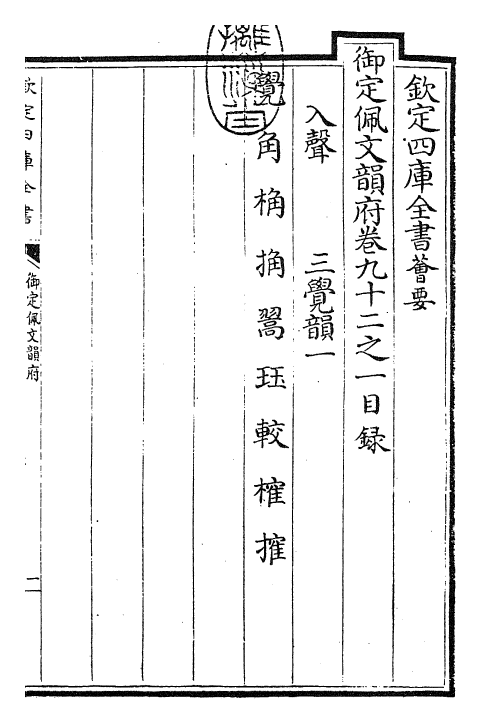 欽定四庫全書薈要
御定佩文韻府卷九十二之一目錄
入聲 三覺韻一
覺角桷捔翯珏較榷搉
欽定四庫全書
御定佩文韻府
一